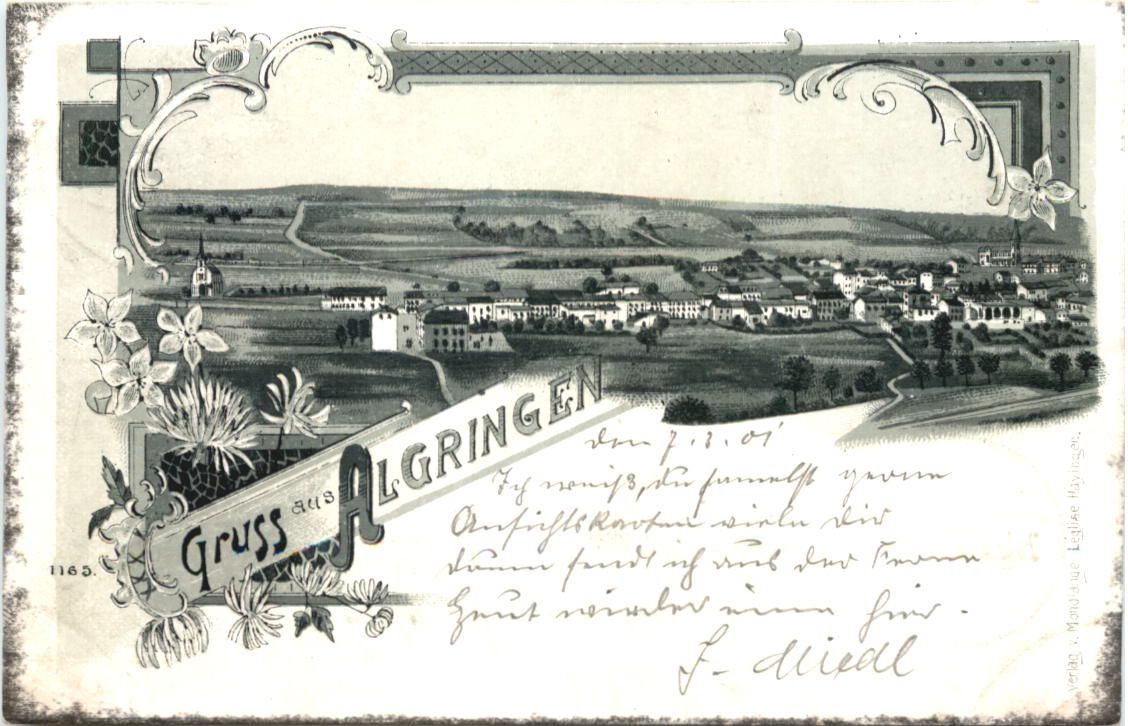 Gruss aus ALGRINGEN
den 7.3.01
Ich weiß, du samelst gerne
Ansichtskarten viele dir
drum send ich aus der Ferne
Heut wieder eine hier.
J. Miedl
1165.
Verlag v. Mondlange Léglise Hayingen.